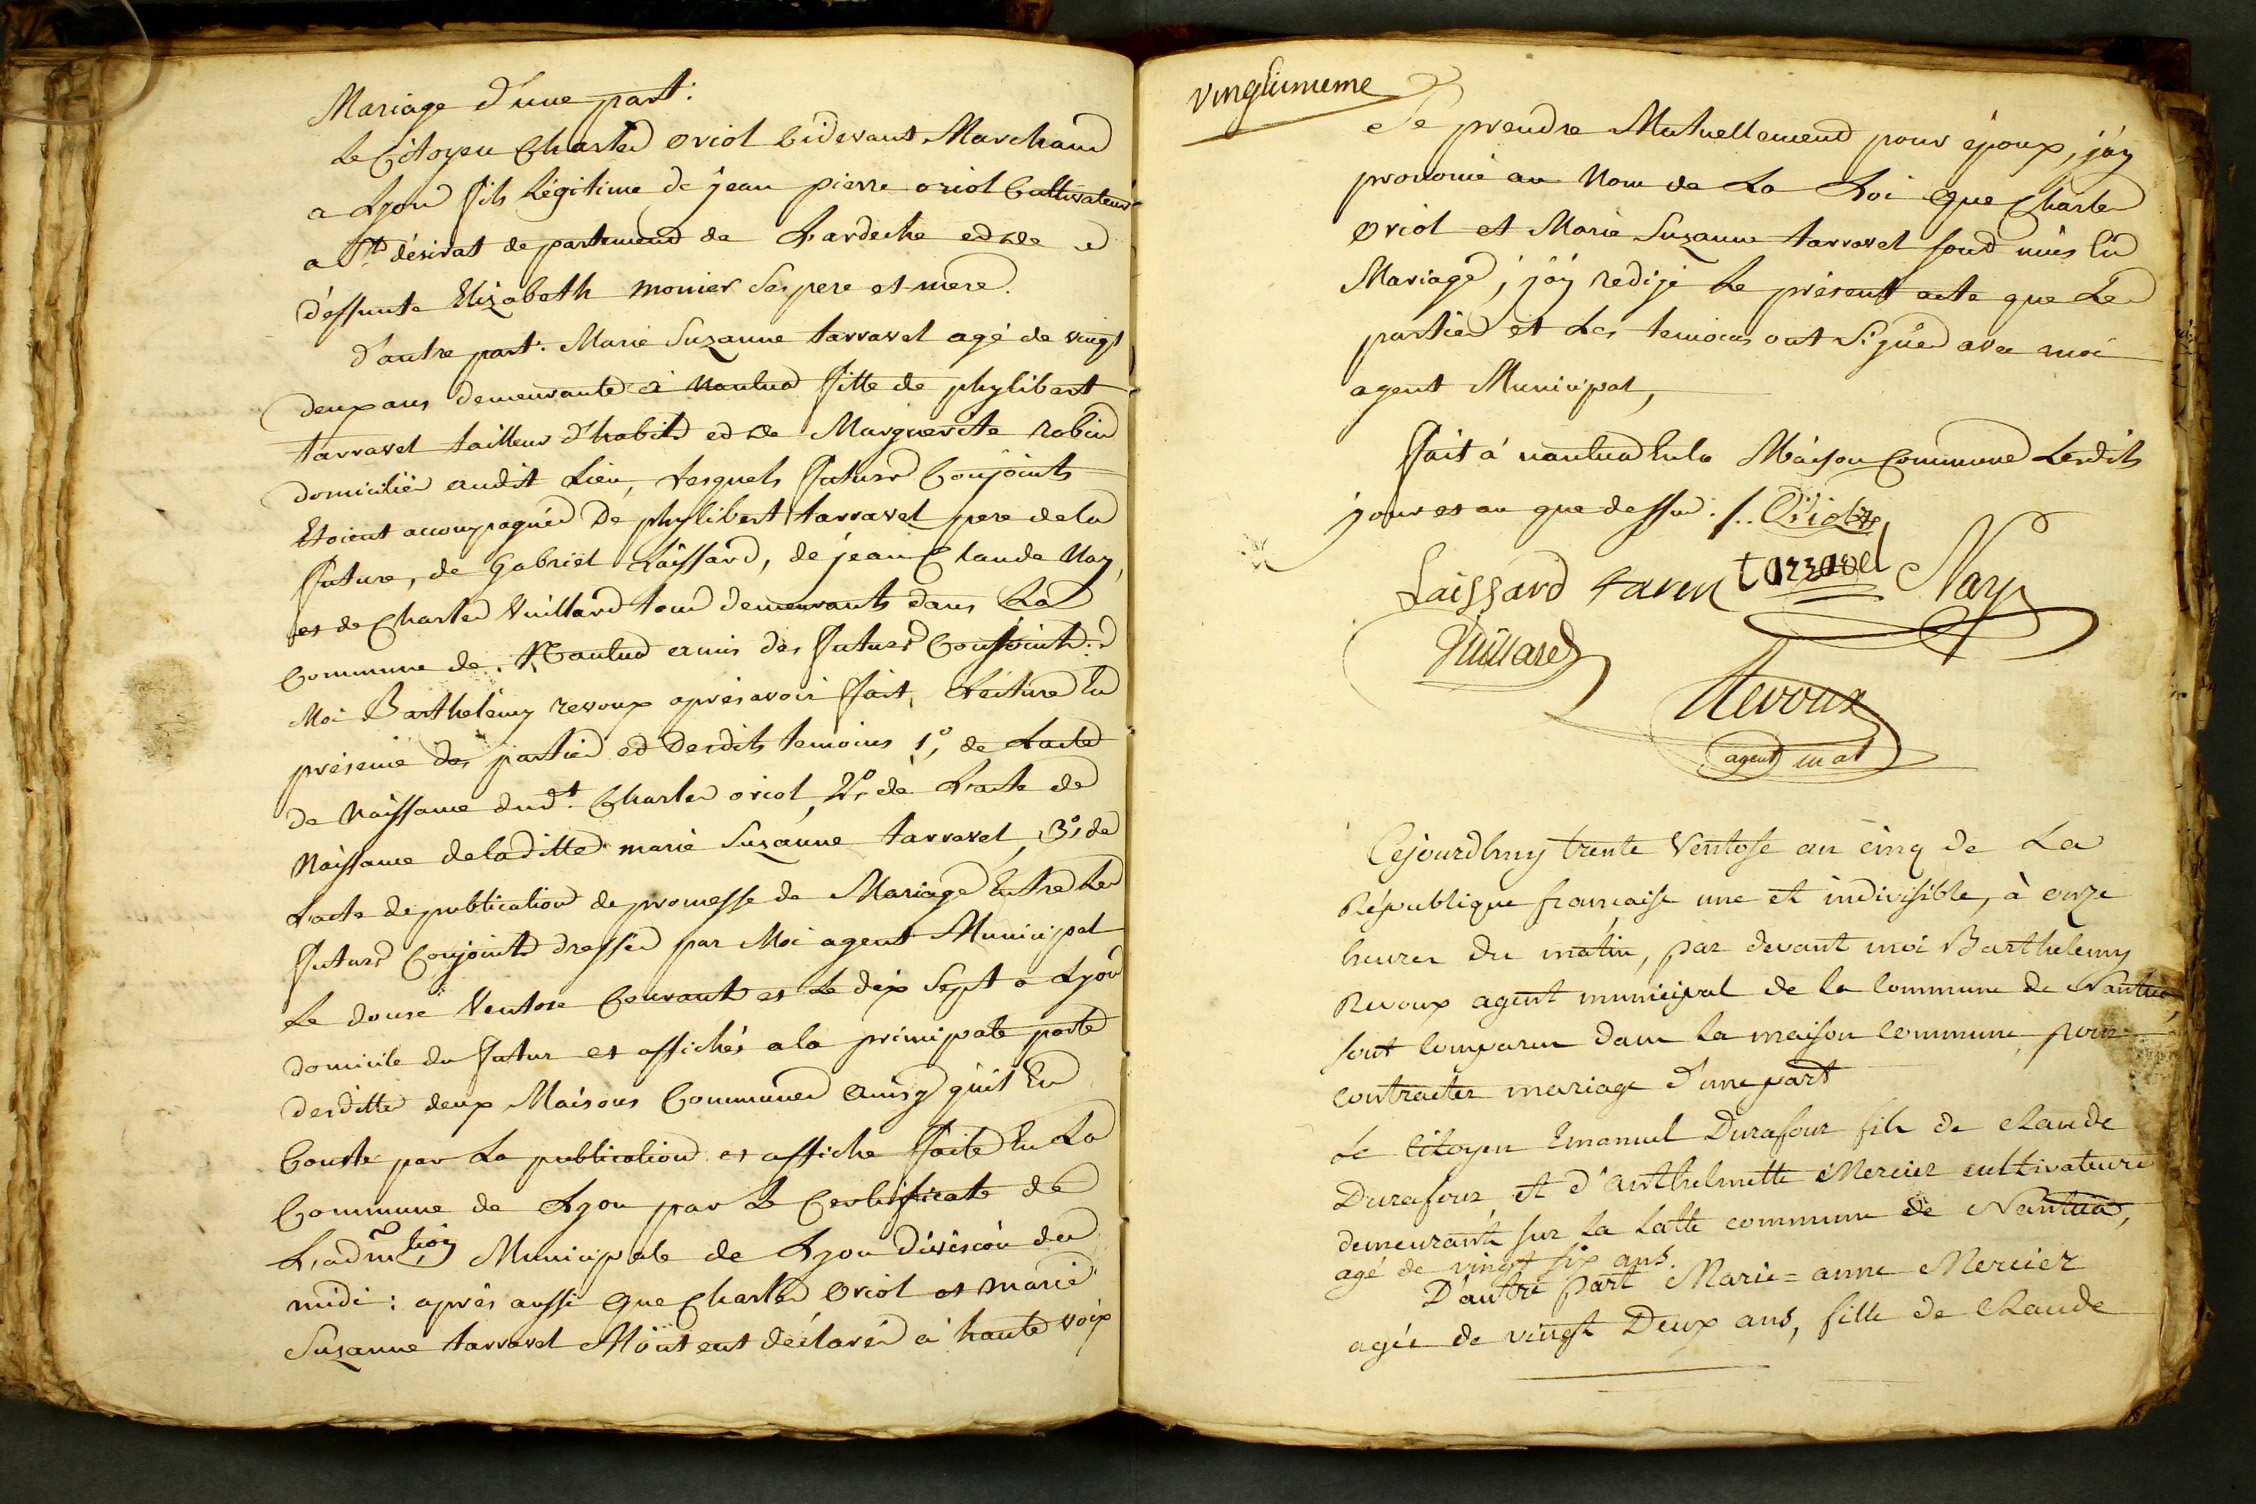 Mariage d'une part.
Le Citoyen Charles Oriol Cidevant Marchand
a Lyon fils Légitime de jean pierre oriol Cultivateur
a St. désirat departement de Lardeche et de
déffunte Elizabeth monier Ses pere et mere.
d'autre part. Marie Suzanne tarravel agé de vingt
deux ans demeurante à nantua fille de phylibert
tarravel tailleur d'habits et de Marguerite robin
domiciliés audit Lieu, Lesquels futurs Conjoints
Etoient accompagnés De phylibert tarravel pere de la
future, de Gabriel Laissard, de jean Claude Nay,
et de Charles Vuillard tous demeurants dans La
Commune de Nantua amis des futurs Conjoints.
Moi Barthelemy revoux après avoir fait Lecture En
présence des parties et Desdits temoins 1°, de Lacte
de Naissance dudt. Charles oriol, 2°, de Lacte de
Naissance de laditte marie Suzanne tarravel, 3°, de
Lacte de publication de promesse de Mariage Entre Les
futurs Conjoints dressés par Moi agent Municipal
Le douze Ventose Courant et Le dix Sept a Lyon
domicile du futur et affichés a la principale porte
desdittes deux Maisons Communes ainsy quil En
Conste par La publication et affiche faite En La
Commune de Lyon par Le Certifficate de
L'admtion Municipale de Lyon division du
midi: après aussi que Charles Oriol et marie
Suzanne tarravel M'ont eut déclarés a haute voix
vingtunieme
Se prendre Mutuellement pour époux, j'ay
prononcé au Nom de La Loi que Charles
Oriol et Marie Suzanne tarravel sont unis En
Mariage, j'ay redigé Le présent acte que Les
parties et Les temoins ont Signés avec moi
agent Municipal,
fait à nantua En la Maison Commune Lesdits
jour et an que dessus. Oriol
Laissard tarravel Nay
Vuillard
Revoux
agent mal
Cejourdhuy trente Ventose an cinq de La
République française une et indivisible, à onze
heures du matin, par devant moi Barthelemy
Revoux agent municipal de la commune de Nantua,
sont comparus dans la maison commune, pour
contracter mariage d'une part
Le Citoyen Emanuel Durafour fils de Claude
Durafour et d'anthelmette Mercier cultivateurs
demeurant sur La Latte commune de Nantua,
agé de vingt six ans.
D'autre part Marie=anne Mercier
agée de vingt Deux ans, fille de Claude